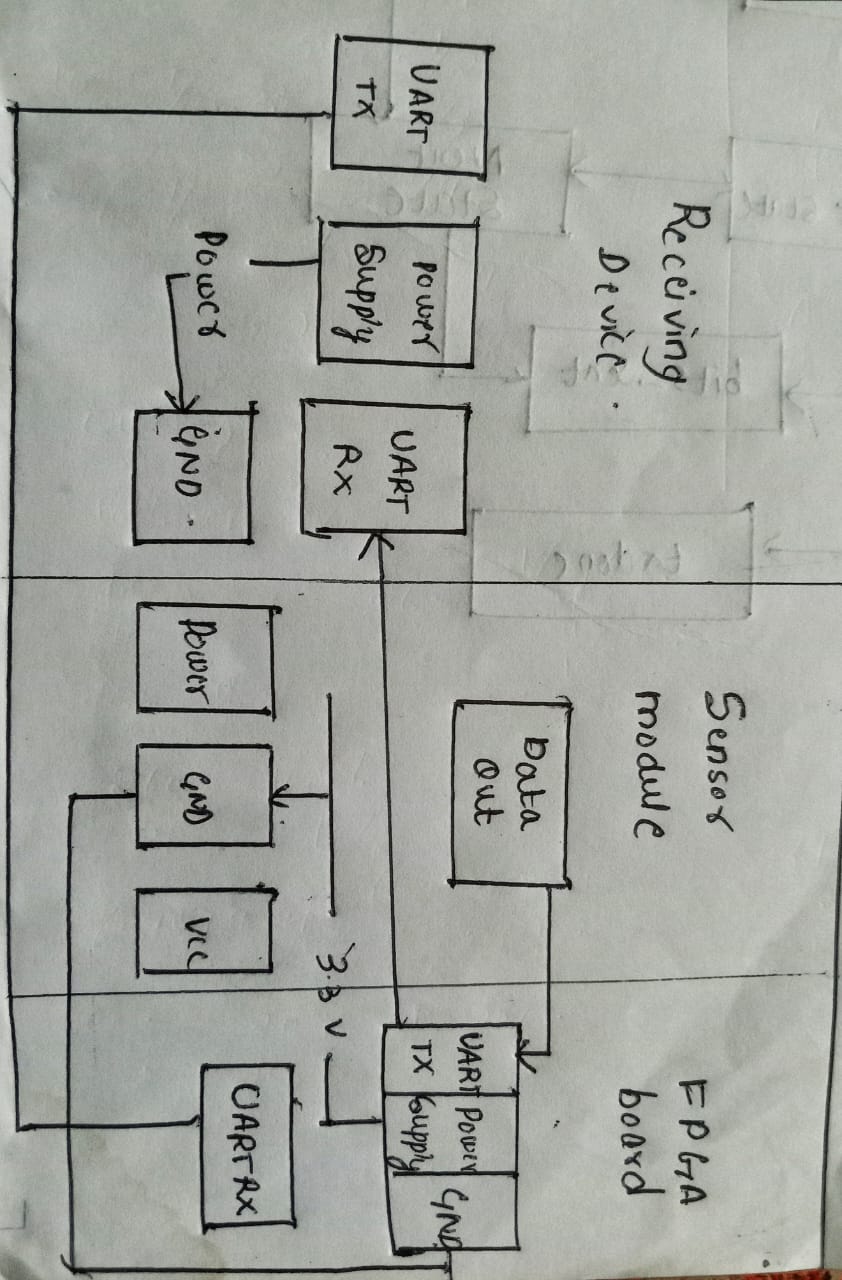 Receiving
Device.
UART
TX
Power
Supply
UART
RX
Power
GND.
Sensor
module
Data
Out
3.3 V
Power
GND
VCC
FPGA
board
UART
TX
Power
Supply
GND
UART RX